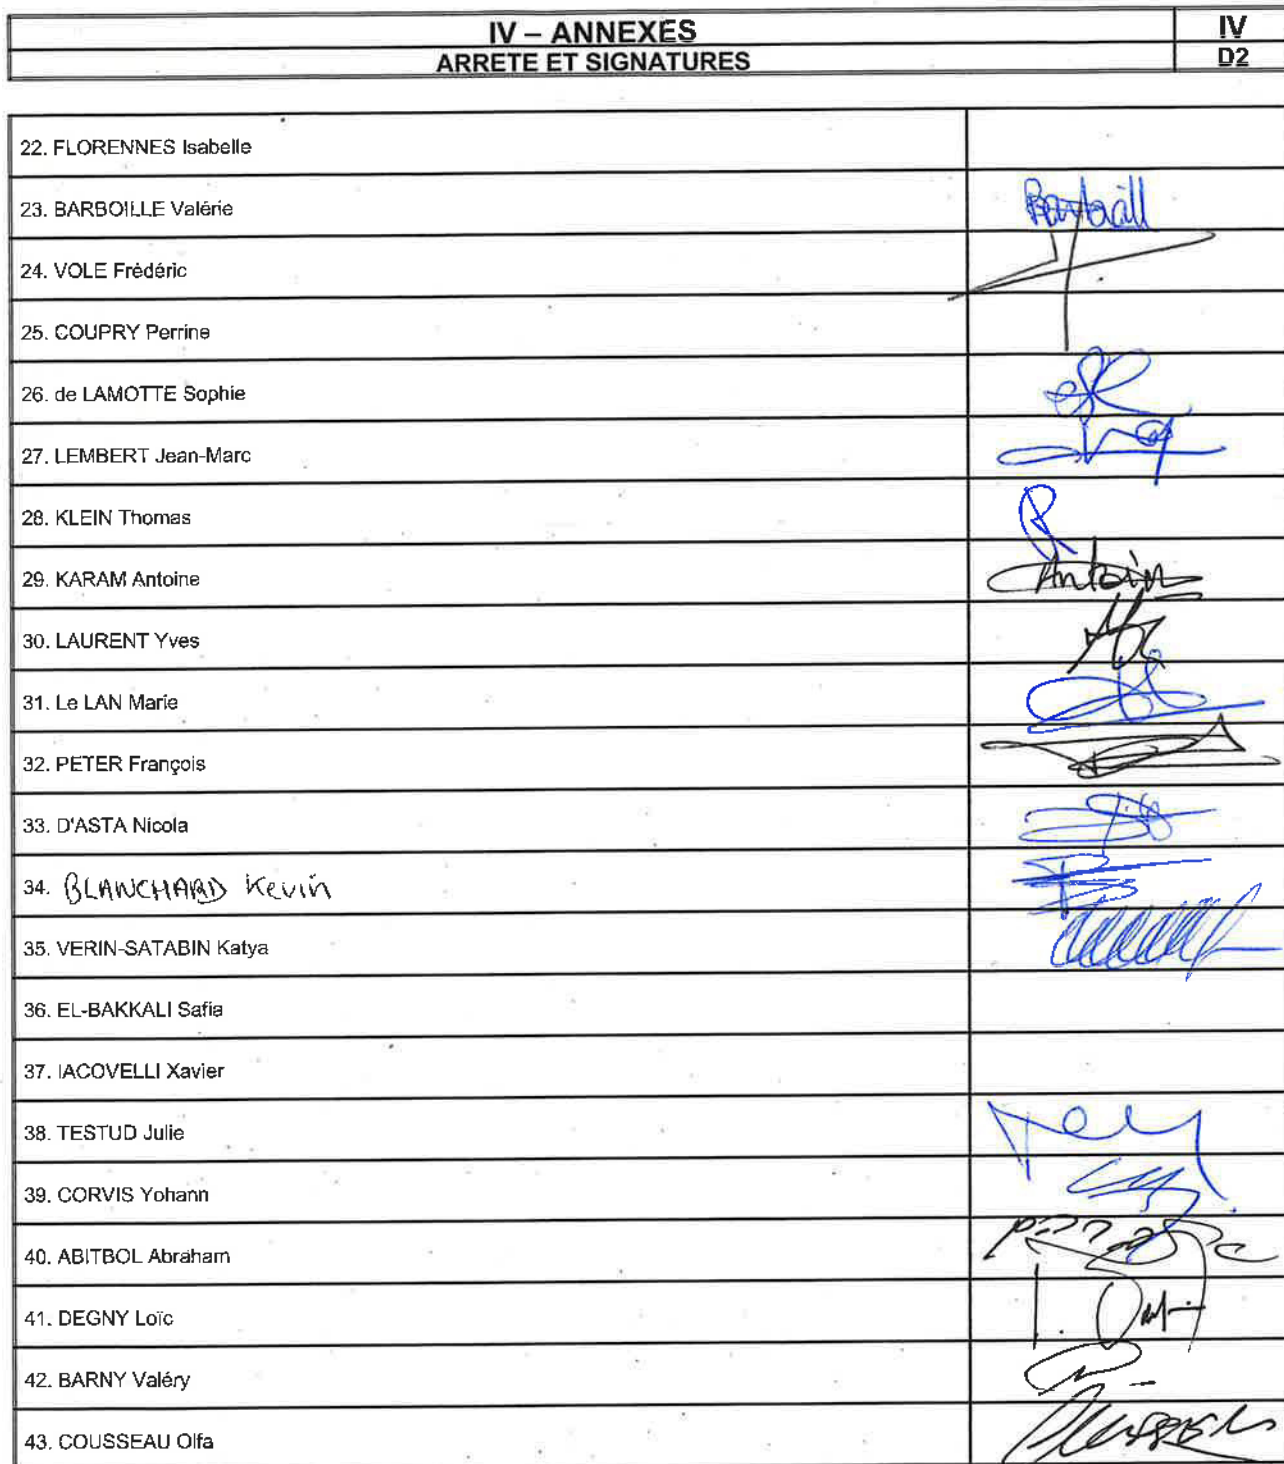 IV – ANNEXES
IV
ARRETE ET SIGNATURES
D2
22. FLORENNES Isabelle
23. BARBOILLE Valérie
24. VOLE Frédéric
25. COUPRY Perrine
26. de LAMOTTE Sophie
27. LEMBERT Jean-Marc
28. KLEIN Thomas
29. KARAM Antoine
Antoine
30. LAURENT Yves
31. Le LAN Marie
32. PETER François
33. D'ASTA Nicola
34. BLANCHARD Kevin
35. VERIN-SATABIN Katya
36. EL-BAKKALI Safia
37. IACOVELLI Xavier
38. TESTUD Julie
39. CORVIS Yohann
40. ABITBOL Abraham
41. DEGNY Loïc
42. BARNY Valéry
43. COUSSEAU Olfa